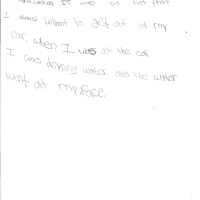 IT was so hot that
I almost want to get out of my
car. when I was at the car
I was drinking water and the water
went at my face.